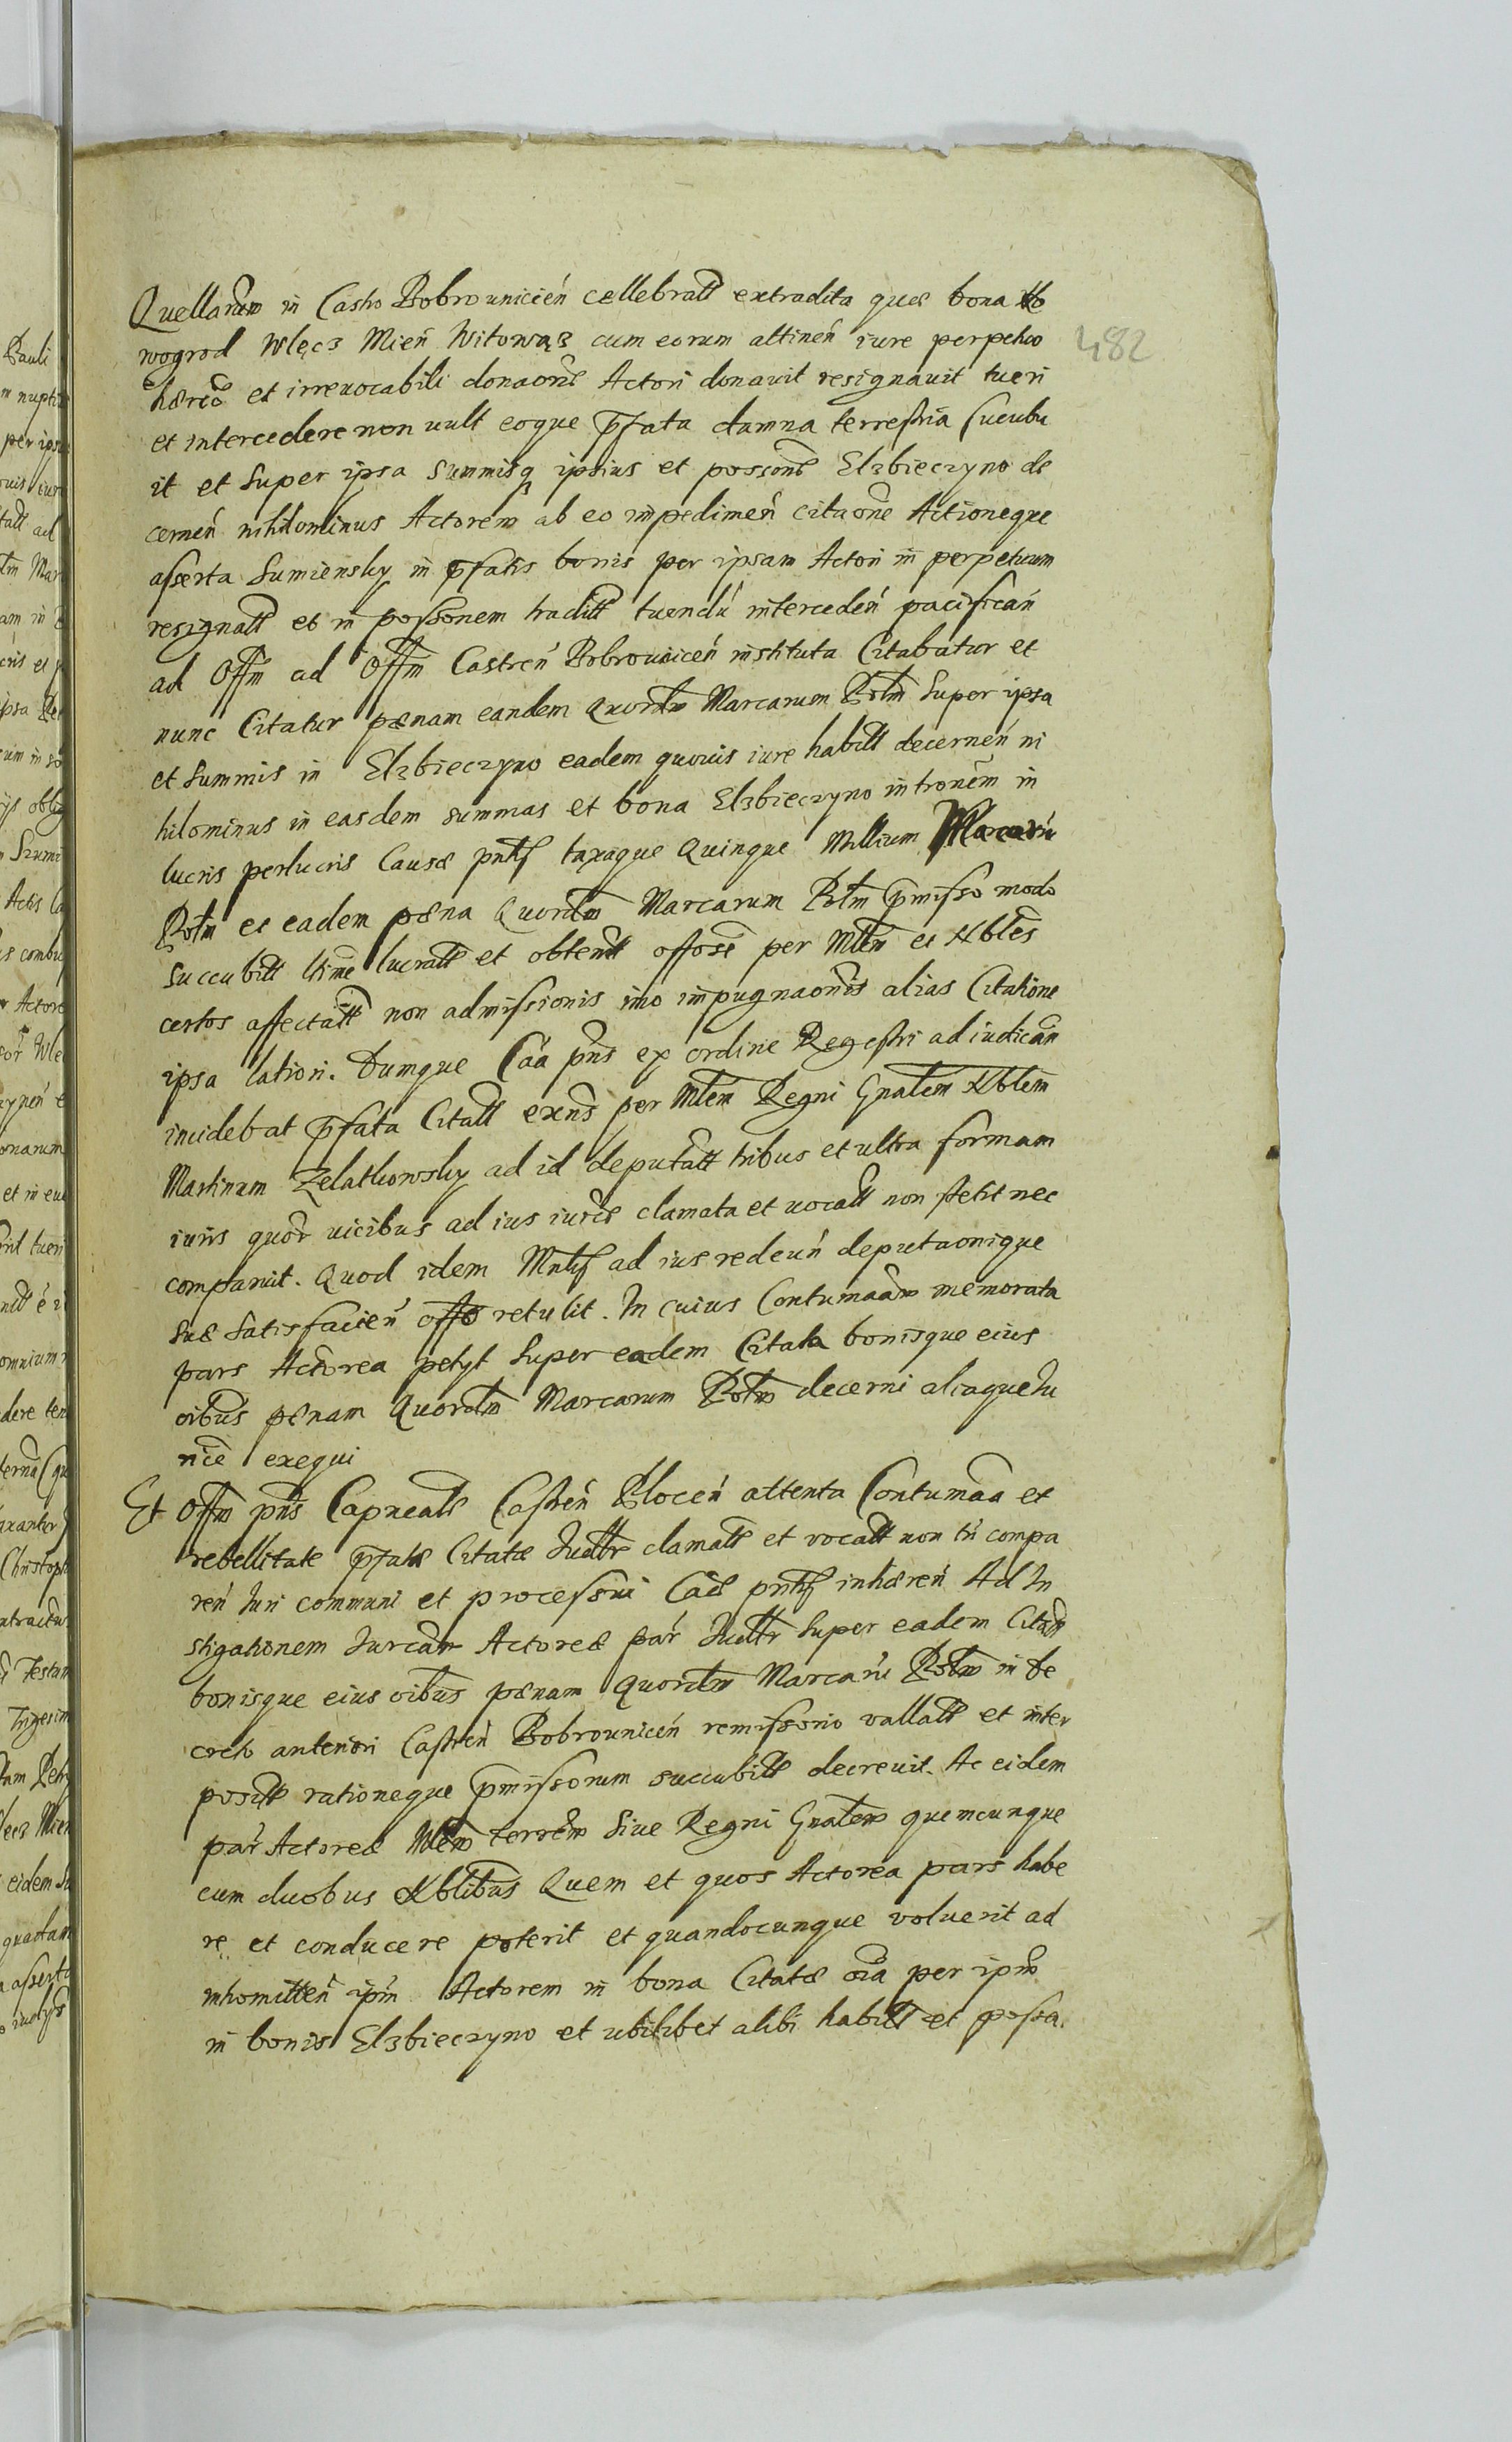 Quellarum in Castro Bobrounicień cellebratt extradita quæ bona No
wogrod Wlęcz Mień Witowąz cum eorum attineń iure perpetuo
hæreo et irreuocabili donaone Actori donauit resignauit tueri
et intercedere non uult eoque pfata damna terrestria sucubu
it et super ipsa summisq ipsius et possone Elzbieczyno de
cerneń nihilominus Actorem ab eo impedimeń citaone Actioneque
asserta Sumiensky in pfatis bonis per ipsam Actori in perpetuum
resignatt et in possonem traditt tuendu intercedeń pacifican
ad Offm ad Offm Castreń Bobrouniceń instituta Citabatur et
nunc Citatur pænam eandem Quordm Marcarum Polm super ipsa
et summis in Elzbieczyno eadem quouis iure habitt decerneń ni
hilominus in easdem summas et bona Elzbieczyno intronem in
lucris perlucris Causæ pntis taxaque Quinque Millium Marcaru
Polm et eadem pæna Quordm Marcarum Polm pmisso modo
succubitt ltime lucratt et obtent offose per Mlem et Nbles
certos affectatt non admissionis imo impugnaonis alias Citatione
ipsa latiori. Dumque Caa pns ex ordine Regestri ad iudican
incidebat pfata Citatt exns per Mlem Regni Gnalem Nblem
Martinum Zelathowsky ad id deputatt tribus et ultra formam
iuris quor uicibus ad ius iurde clamata et uocatt non stetit nec
comparuit. Quod idem Mntis ad ius redeuń deputaonique
suæ satisfacień offo retulit. In cuius Contumaam memorata
pars Actorea petyt super eadem Citata bonisque eius
oibus pænam Quordm Marcarum Polm decerni aliaque Iu
rice exequi
Et Offm pns Capneale Castreń Ploceń attenta Contumaa et
rebellitate pfatæ Citatæ Iudltr clamatt et vocatt non tn compa
reń Iuri communi et processui Caæ pntis inhæreń Ad In
stigationem Iurcam Actoreæ par Iudltr super eadem Citam
bonisque eius oibus pænam Quordm Marcaru Polm in de
creto anteriori Castreń Bobrouniceń remissorio vallatt et inter
positt rationeque pmissorum succubitt decreuit. Ac eidem
par Actoreæ Mlem terrem siue Regni Gnalem quemcunque
cum duobus Nblibus Quem et quos Actorea pars habe
re et conducere poterit et quandocunque voluerit ad
intromitteń ipm Actorem in bona Citatæ oia per ipm
in bonis Elzbieczyno et ubilibet alibi habitt et possa.
482